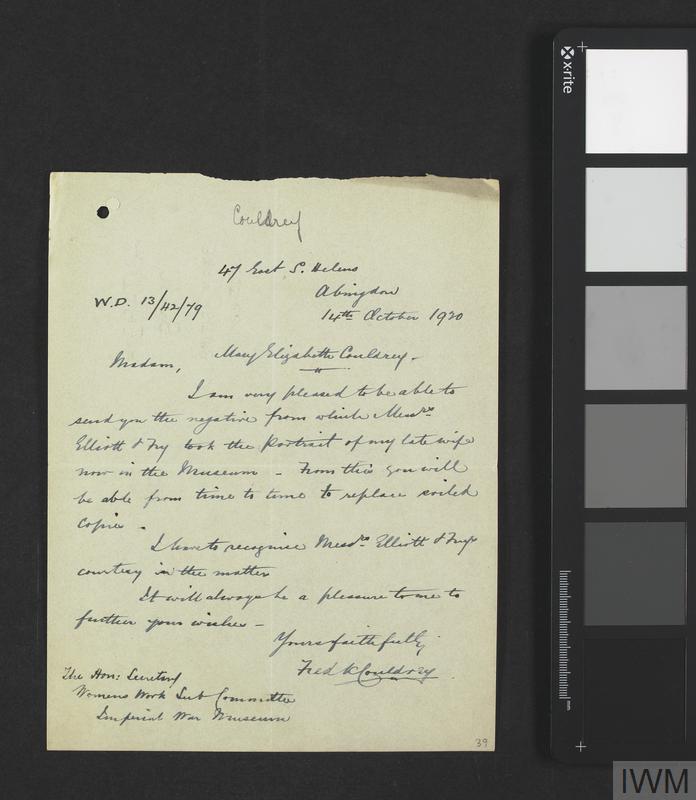 Couldrey
47 East S. Helens
Abingdon
W.D. 13/42/79
14th October 1920
Mary Elizabeth Couldrey -
Madam,
I am very pleased to be able to
send you the negative from which Messrs
Elliott & Fry took the Portrait of my late wife
now in the Museum - From this you will
be able from time to time to replace soiled
copies -
I have to recognise Messrs Elliott & Fry's
courtesy in the matter
It will always be a pleasure to me to
further your wishes -
Yours faithfully,
Fredk Couldrey.
The Hon: Secretary
Womens Work Sub Committee
Imperial War Museum
39
x-rite
mm
IWM